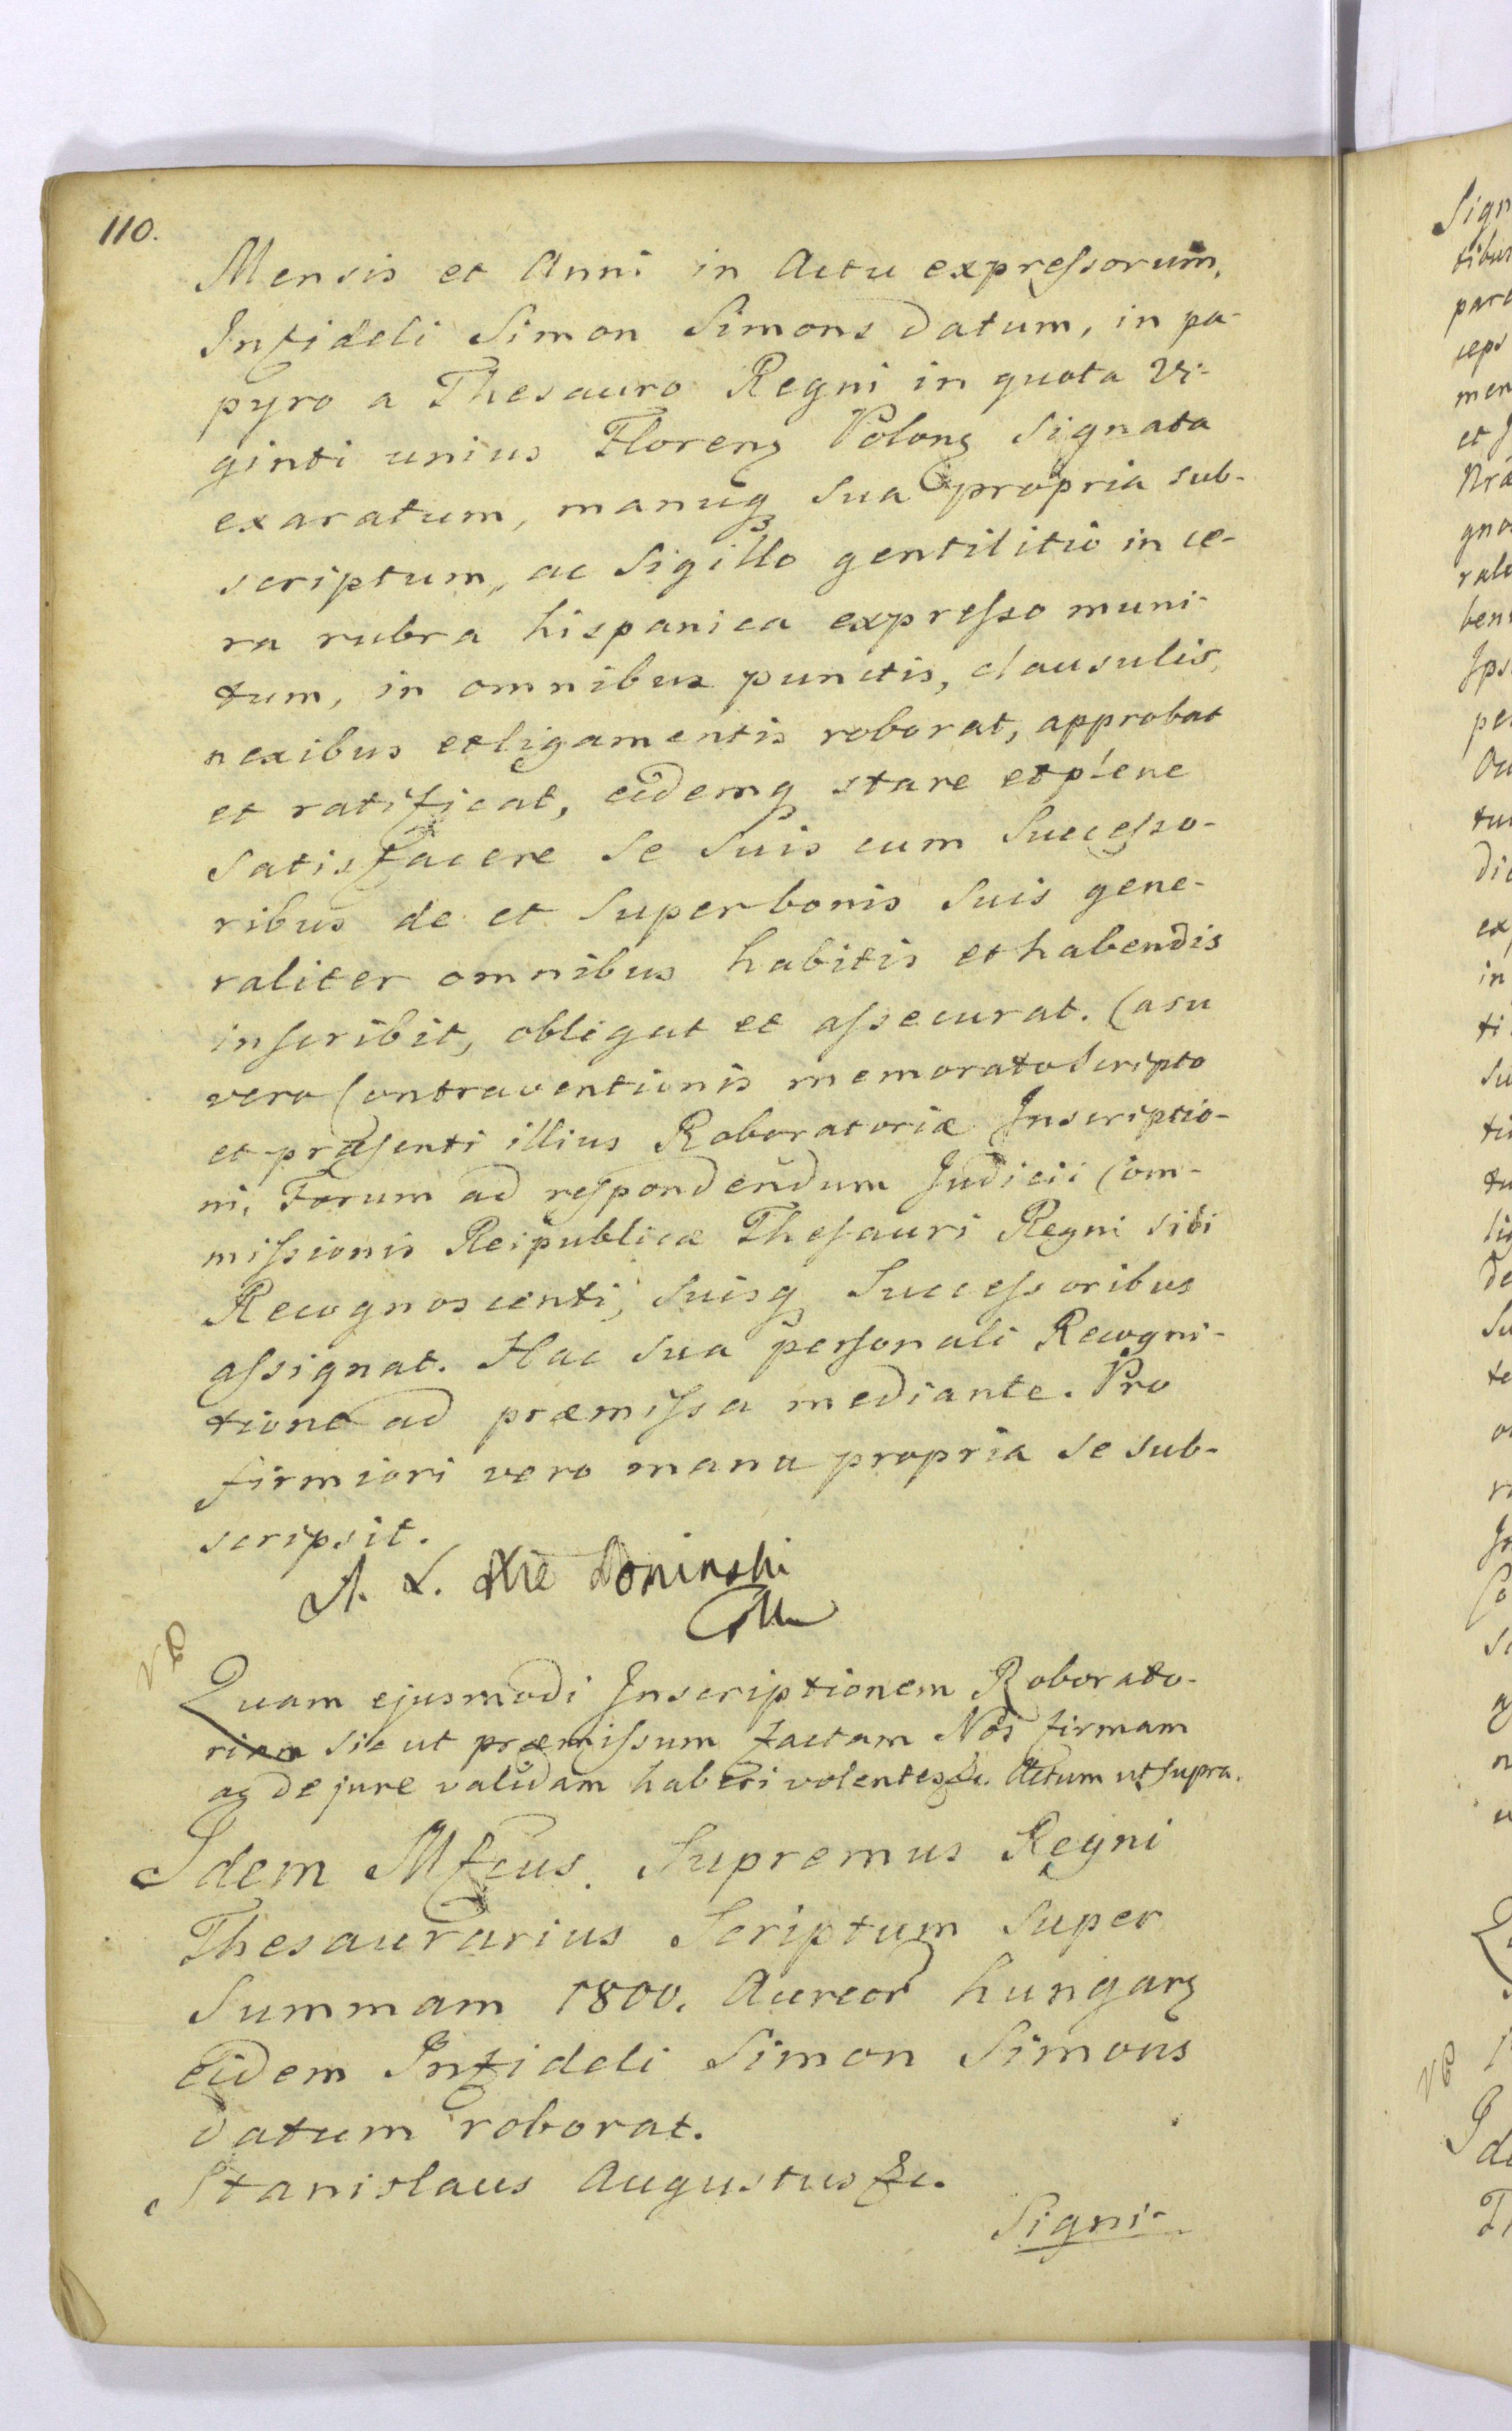 110.
Mensis et Anni in Actu expressorum,
Infideli Simon Simons datum, in pa-
pyro a Thesauro Regni in quota Vi-
ginti unius Florenꝫ Polonꝫ Signata
exaratum, manuqꝫ sua propria sub-
scriptum, ac Sigillo gentilitio in ce-
ra rubra hispanica expresso muni-
tum, in omnibus punctis, clausulis,
nexibus et ligamentis roborat, approbat
et ratificat, eidemqꝫ stare et plene
satisfacere se suis cum Successo-
ribus de et super bonis suis gene-
raliter omnibus habitis et habendis
inscribit, obligat et assecurat. Casu
vero Contraventionis memorato Scripto
et præsenti illius Roboratoriæ Inscriptio-
ni, Forum ad respondendum Judicii Com-
missionis Reipublicæ Thesauri Regni sibi
Recognoscenti, suisqꝫ Successoribus
assignat. Hac sua personali Recogni-
tione ad præmissa mediante. Pro
firmiori vero manu propria se sub-
scripsit.
A. L. Poninski
Quam ejusmodi Inscriptionem Roborato-
riam sic ut præmissum factam Nos firmam
ac de jure validam haberi volentes &c. Actum ut supra.
Idem Mfcus. Supremus Regni
Thesaurarius Scriptum super
Summam 1800. Aureor hungarꝫ
eidem Infideli Simon Simons
datum roborat.
Stanislaus Augustus &c.
Signi-